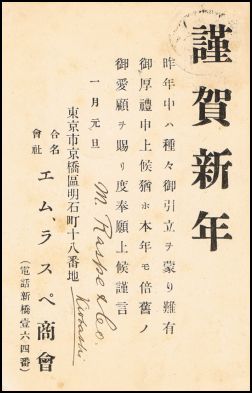 謹賀新年
昨年中ハ種々御引立ヲ蒙リ難有
御厚禮申上候猶ホ本年モ倍舊ノ
御愛顧ヲ賜リ度奉願上候謹言
一月元旦
東京市京橋區明石町十八番地
合名會社 エム、ラスペ商會
(電話新橋壹六四番)
M. Raspe & Co.
Kiobashi